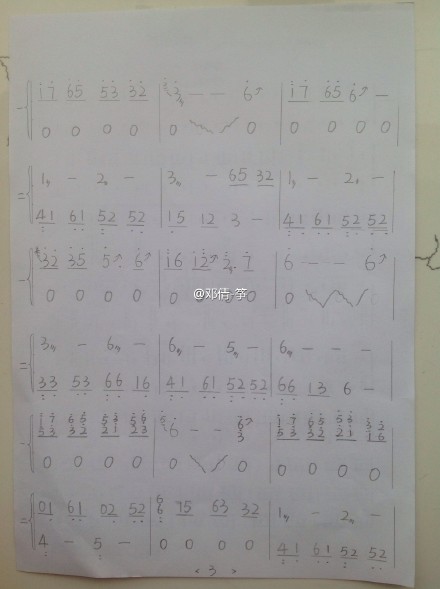 一 1̇7 65 53 32 | 2̇ - - 6 | 1̇7 65 6 -
0 0 0 0 | 0 0 | 0 0 0 0
二 1 - 2 - | 3 - 65 32 | 1 - 2 -
41 61 52 52 | 15 12 3 - | 41 61 52 52
一 32 35 5 6 | 16 12 2 7 | 6 - - 6
0 0 0 0 | 0 0 0 0 | 0 0
@邓倩-筝
二 3 - 6 - | 6 - 5 - | 6 - - -
33 53 66 16 | 41 61 52 52 | 66 13 6 -
一 6 - -
0 0 0 0 | 0 0 | 0 0 0 0
二 01 61 02 52 | 66 75 63 32 | 1 - 2 -
4 - 5 - | 0 0 0 0 | 41 61 52 52
< 3 >